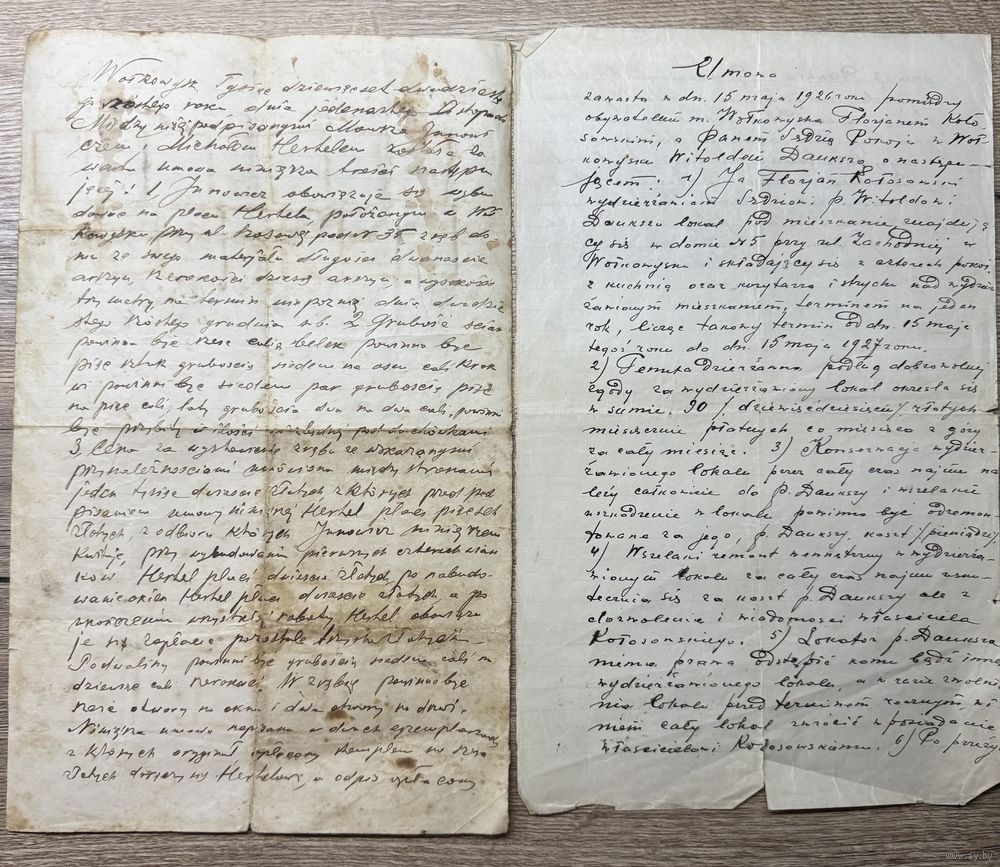 Wołkowysk Tysiąc dziewięćset dwudziestego
szóstego roku dnia jedenastego Listopada
Między niżej podpisanymi
i Michałem Herkelem została za
warta umowa niniejsza treści następu
jącej: 1 Junowicz obowiązuje się wybu
dować na placu Herkela położonym w Woł
kowysku przy ul. pod № 35 zrąb do
mu ze swego materjału długości dwanaście
arszyn szerokości dziesięć arszyn a wysokości
trzy metry, na termin niepóźniej dnia dwudzie
stego szóstego grudnia r.b. 2 Grubość ścian
powinna być sześć cali, belek powinno być
pięć sztuk grubością siedem na osiem cali krok
wi powinni być siedem par grubością pięć
na pięć cali, łaty grubością dwa na dwa cali, powinni
być przybity w ilości pod dachówkami
3, Cena za wystawienie zrębu ze wskazanymi
przynależnościami umówiona między stronami
jeden tysiąc dwieście złotych z których przed pod
pisaniem umowy niniejszej Herkel płaci pięćset
złotych, z odbioru których Junowicz niniejszem
kwituje, przy wybudowaniu pierwszych czterech wian
ków Herkel płaci dwieście złotych, po nabudo
waniu okien Herkel płaci dwieście złotych a po
skończeniu wszystkiej roboty Herkel obowiązu
je się zapłacić pozostałe trzysta złotych
Podwaliny powinni być grubością siedem cali na
dziewięć cali szerokości. W zrębie powinno być
sześć otwory na okna i dwa otwory na drzwi.
Niniejsza umowa napisana w dwuch egzemplarzach
z których oryginał opłacony stemplem na sześć
złotych doręczony Herkelowi, a odpis opłacony
Umowa
zawarta w dn. 15 maja 1926 roku pomiędzy
obywatelem m. Wołkowyska Florjanem Koło
sowskim, a Panem Sędzią Pokoju w Woł-
kowysku Witoldem Daukszą o następu-
jącem: 1) Ja Florjan Kołosowski
wydzierżawiam Sędziowi p. Witoldowi
Daukszy lokal pod mieszkanie znajdują
cy się w domie №5 przy ul. Zachodniej w
Wołkowysku i składający się z czterech pokoi
z kuchnią oraz korytarza i strychu nad wydzier
żawionym mieszkaniem, terminem na jeden
rok, licząc takowy termin od dn. 15 maja
tegoż roku do dn. 15 maja 1927 roku.
2) Tenuta Dzierżawna podług dobrowolnej
zgody za wydzierżawiony lokal określa się
w sumie 90 /dziewięćdziesięciu/ złotych
miesięcznie płatnych co miesiąca z góry
za cały miesiąc. 3) Konserwacja wydzier-
żawionego lokalu przez cały czas najmu na
leży całkowicie do p. Daukszy i wszelkie
uszkodzenie w lokalu powinno być odremon
towane za jego, p. Daukszy, koszt /pieniądze/.
4) Wszelki remont wewnętrzny w wydzierża-
wionym lokalu za cały czas najmu usku-
tecznia się za koszt p. Daukszy ale z
dozwolenia i wiadomości właściciela
Kołosowskiego. 5) Lokator p. Dauksza
niema prawa odstąpić komu bądź innemu
wydzierżawionego lokalu, a w razie zwolnie
nia lokalu przed terminem rocznym, wi
nien cały lokal zwrócić w posiadanie
właścicielowi Kołosowskiemu. 6) Po przeży
www.ay.by